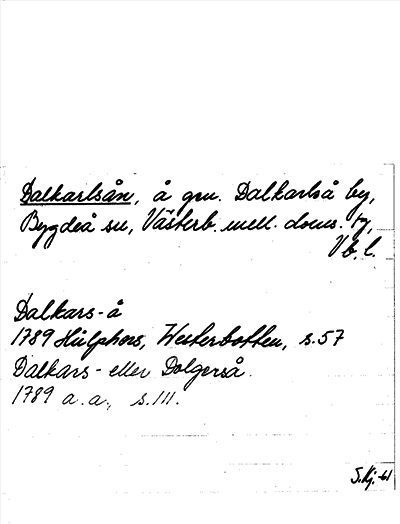 Dalkarlsån, å gm. Dalkarlså by,
Bygdeå sn, Västerb. mell. doms.
Vb. l.
Dalkars-å
1789 Hülphers, Westerbotten, s. 57
Dalkars- eller Dolgerså.
1789 a.a., s. 111.
S.Kj. -61